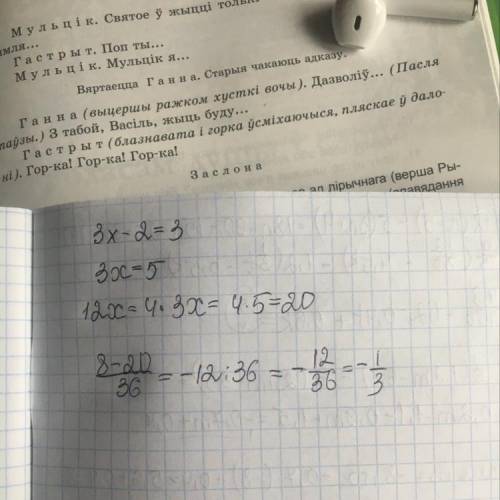 Мульцік. Святое ў жыцці толькі
мля...
Гастрыт. Поп ты...
Мульцік. Мульцік я...
Вяртаецца Ганна. Старыя чакаюць адказу.
Ганна (выцершы ражком хусткі вочы). Дазволіў... (Пасля
паўзы.) З табой, Васіль, жыць буду...
Гастрыт (блазнавата і горка ўсміхаючыся, пляскае ў дало-
ні). Гор-ка! Гор-ка! Гор-ка!
Заслона
ад лірычнага (верша Ры-
3x-2=3
3x=5
12x=4·3x=4·5=20
8-20/36 = -12:36 = -12/36 = -1/3